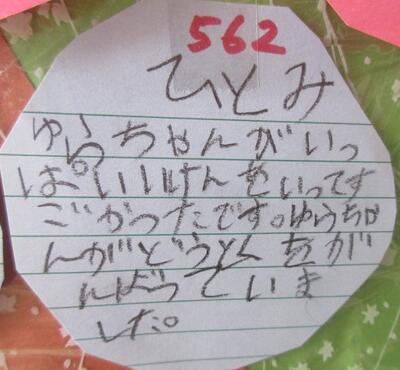 562
ひとみ
ゆらちゃんがいっ
ぱいいけんをいってす
ごかったです。ゆらちゃ
んがどうとくをが
んばっていま
した。